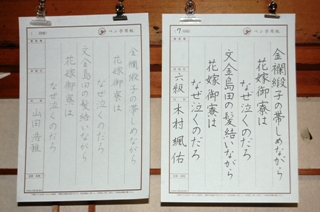 ペン習字紙
金襴緞子の帯しめながら
花嫁御寮は
なぜ泣くのだろ
文金島田の髪結いながら
花嫁御寮は
なぜ泣くのだろ
六級 木村楓佑
金襴緞子の帯しめながら
花嫁御寮は
なぜ泣くのだろ
文金島田の髪結いながら
花嫁御寮は
なぜ泣くのだろ